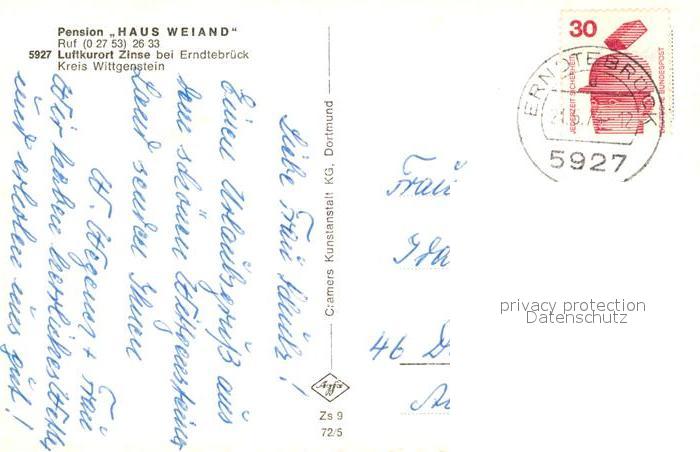 Pension „HAUS WEIAND"
Ruf (0 27 53) 26 33
5927 Luftkurort Zinse bei Erndtebrück
Kreis Wittgenstein
Liebe Frau Schulz!
Einen Urlaubsgruß aus
dem schönen Wittgensteiner
Land senden Ihnen
W. Wegener + Frau
Wir haben herrliches Wetter
und erholen uns gut!
Cramers Kunstanstalt KG, Dortmund
Agfa
Zs 9
72/5
30
JEDERZEIT SICHERHEIT
DEUTSCHE BUNDESPOST
ERNDTEBRÜCK
5927
Frau
Ida
46 D
privacy protection
Datenschutz